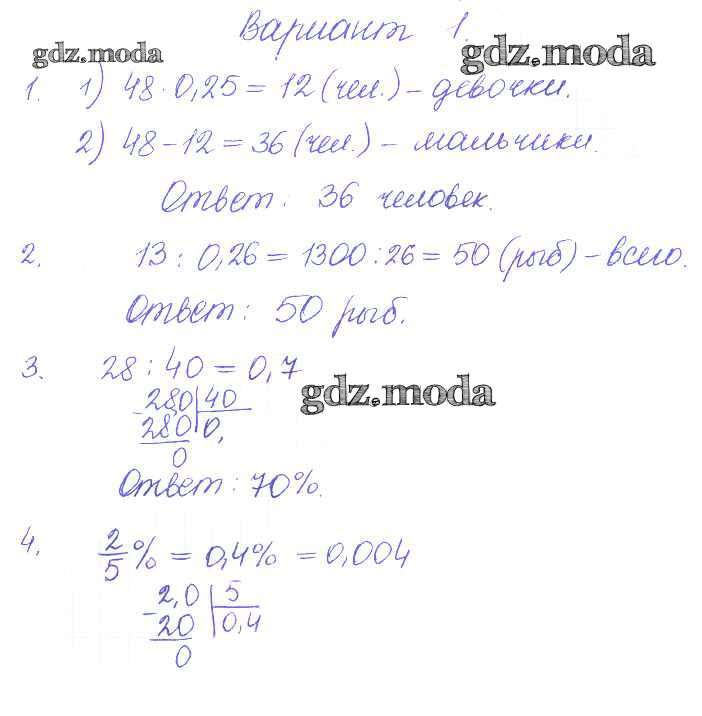 Вариант 1.
gdz.moda
gdz.moda
1. 1) 48 · 0,25 = 12 (чел.) – девочки.
2) 48 – 12 = 36 (чел.) – мальчики.
Ответ: 36 человек.
2. 13 : 0,26 = 1300 : 26 = 50 (рыб) – всего.
Ответ: 50 рыб.
3. 28 : 40 = 0,7
gdz.moda
- 28,0 | 40
28,0 0,
0
Ответ: 70%.
4. 2/5 % = 0,4% = 0,004
- 2,0 | 5
20 0,4
0